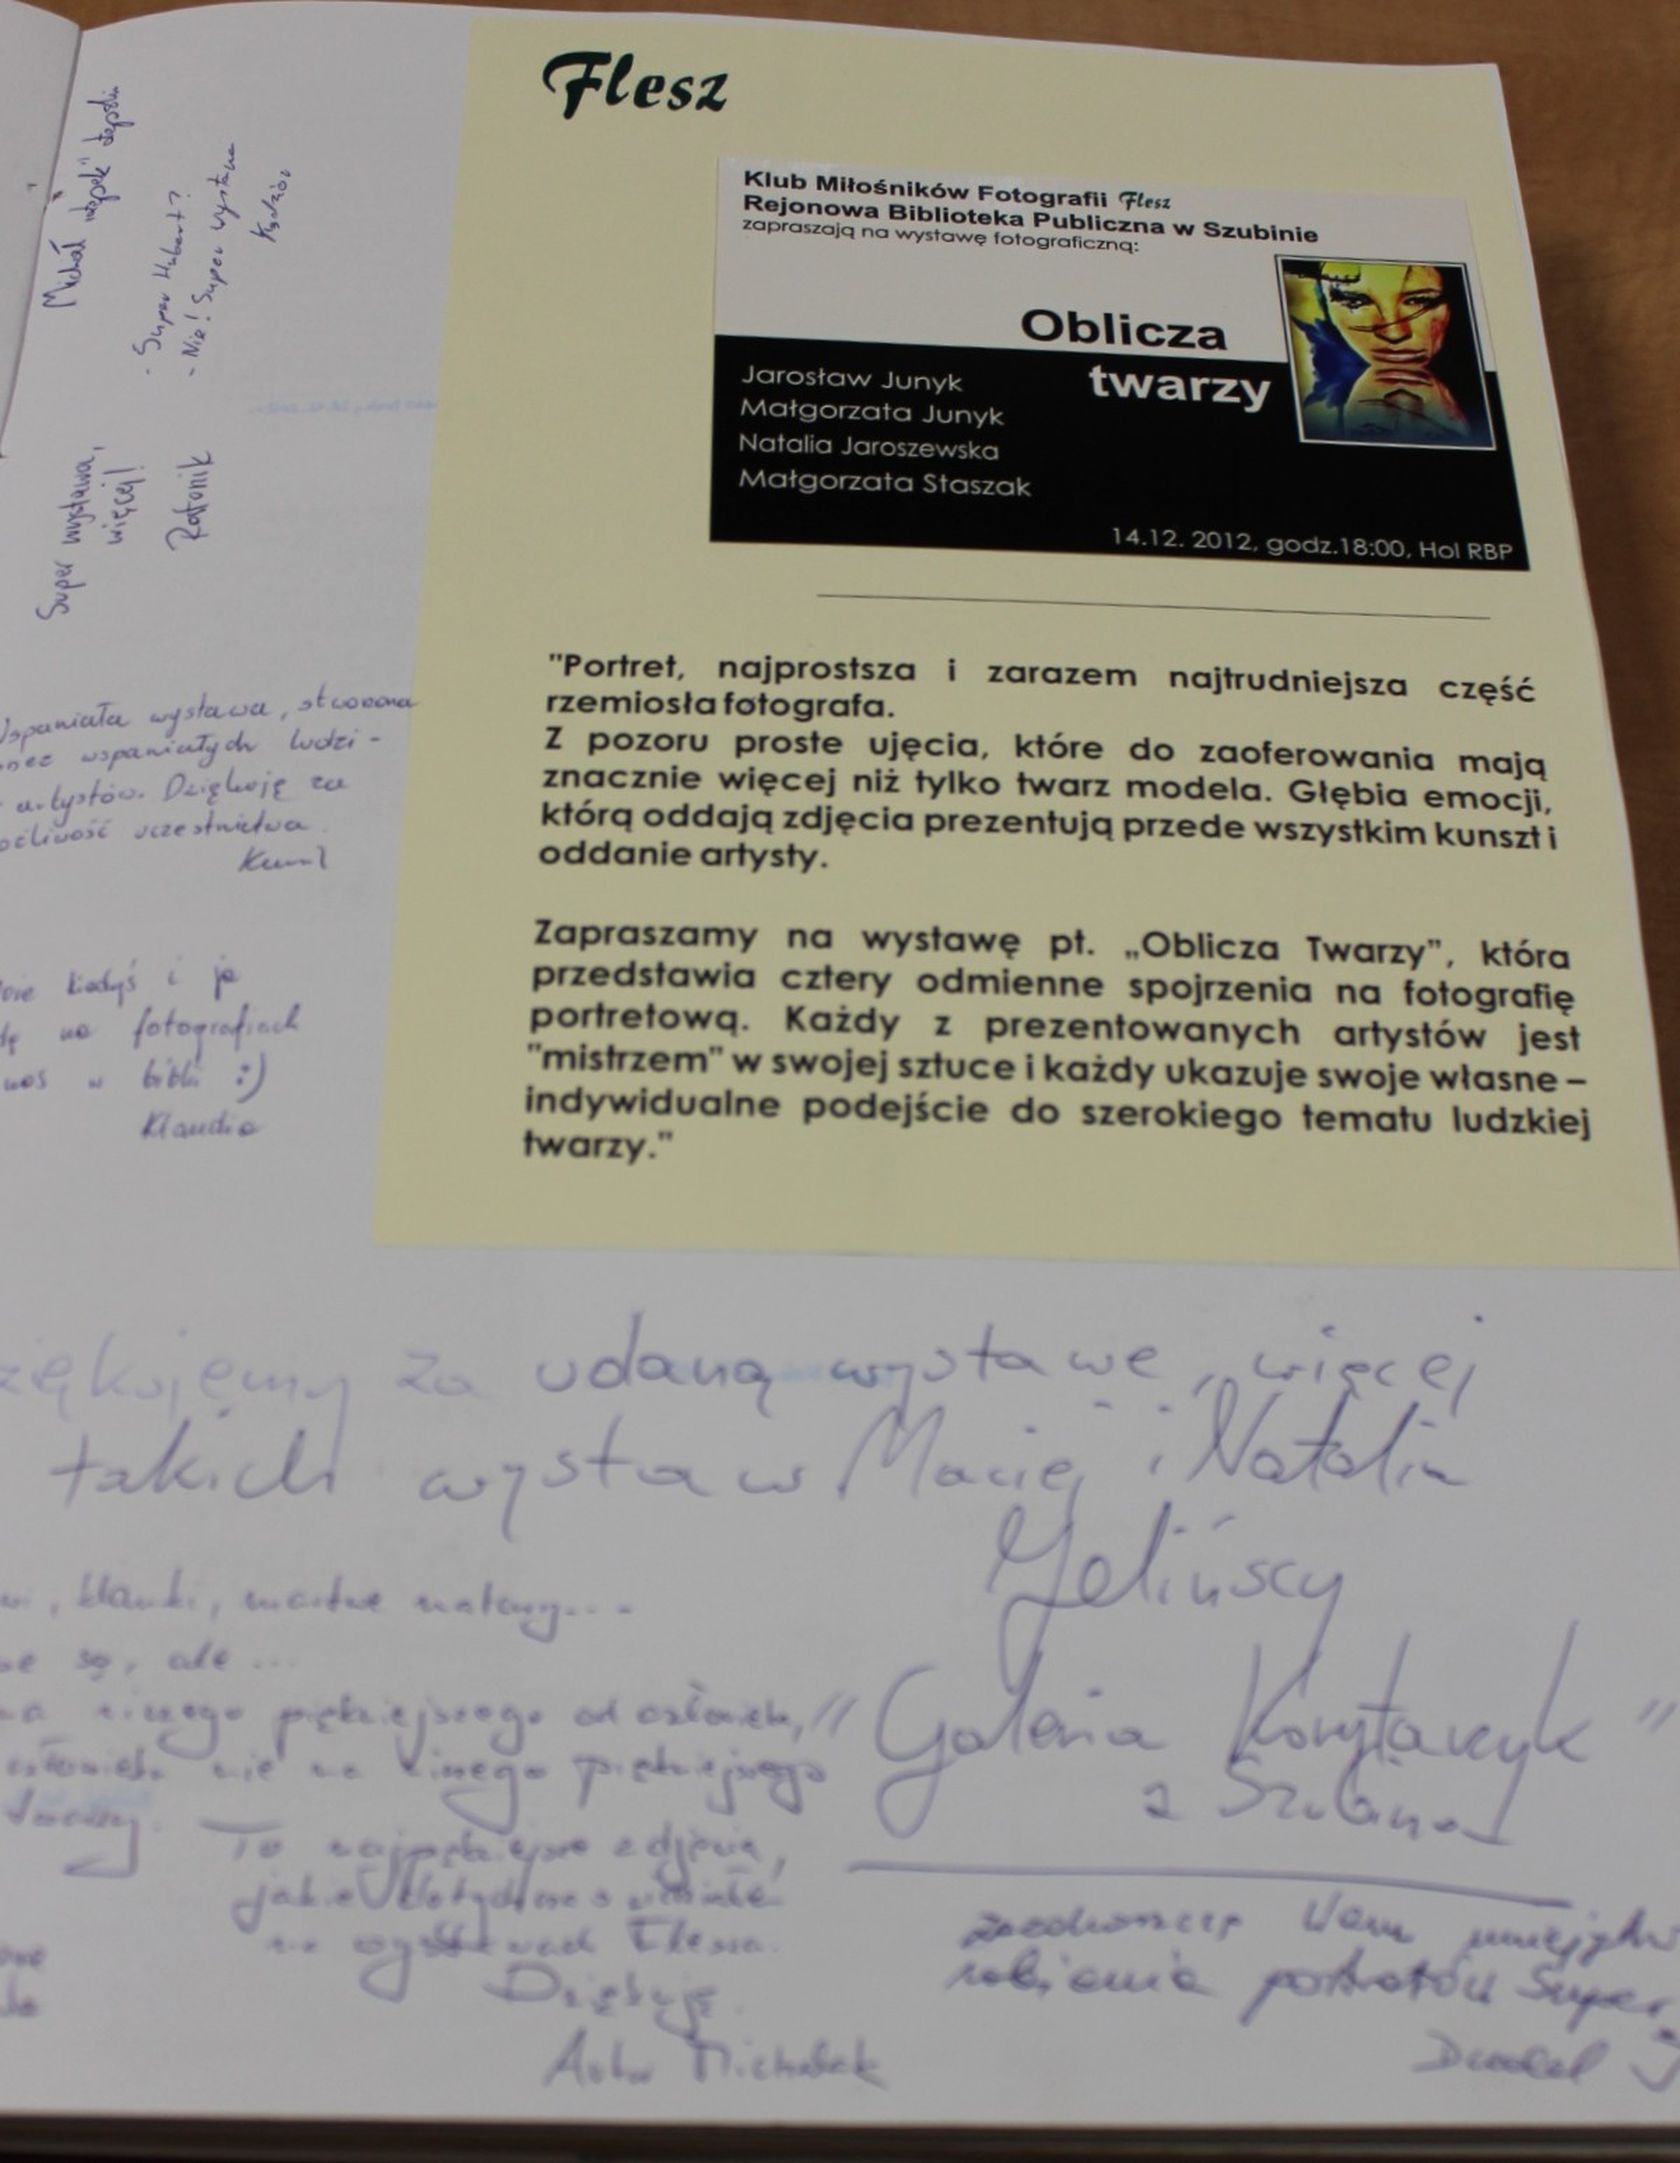 Flesz
Klub Miłośników Fotografii Flesz
Rejonowa Biblioteka Publiczna w Szubinie
zapraszają na wystawę fotograficzną:
Oblicza
twarzy
Jarosław Junyk
Małgorzata Junyk
Natalia Jaroszewska
Małgorzata Staszak
14.12. 2012, godz.18:00, Hol RBP
"Portret, najprostsza i zarazem najtrudniejsza część
rzemiosła fotografa.
Z pozoru proste ujęcia, które do zaoferowania mają
znacznie więcej niż tylko twarz modela. Głębia emocji,
którą oddają zdjęcia prezentują przede wszystkim kunszt i
oddanie artysty.
Zapraszamy na wystawę pt. „Oblicza Twarzy", która
przedstawia cztery odmienne spojrzenia na fotografię
portretową. Każdy z prezentowanych artystów jest
"mistrzem" w swojej sztuce i każdy ukazuje swoje własne –
indywidualne podejście do szerokiego tematu ludzkiej
twarzy."
Michał
- Super Hubert?
- Nie! Super wystawa
Super wystawa,
więcej!
Rafonik
wystawa, stworzona
wspaniałych ludzi -
artystów. Dziękuję za
uczestnictwa
kiedyś i ja
na fotografiach
w bibli :)
Klaudia
za udaną wystawe, więcej
takich wystaw Maciej i Natalia
Gelińscy
"Galeria Korytarzyk"
z Szubina
kwiatki, martwe natury...
są, ale...
piękniejszego od człowieka,
nie ma niczego piękniejszego
twarzy. To najpiękniejsze zdjęcia,
jakie dotychczas
na wystawach Flesza.
Dziękuję.
Michalak
zazdroszczę Wam
robienia portretów Super